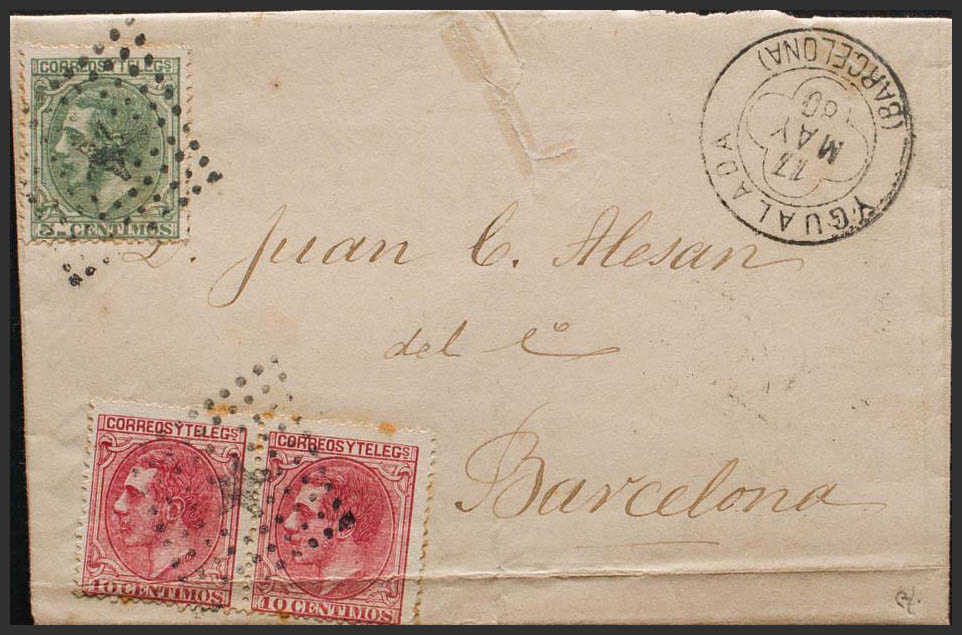 CORREOS Y TELEGS
5 CENTIMOS
YGUALADA
(BARCELONA)
17
MAY
80
D. Juan C. Alesan
del Cº
Barcelona
CORREOS Y TELEGS
10 CENTIMOS
CORREOS Y TELEGS
10 CENTIMOS